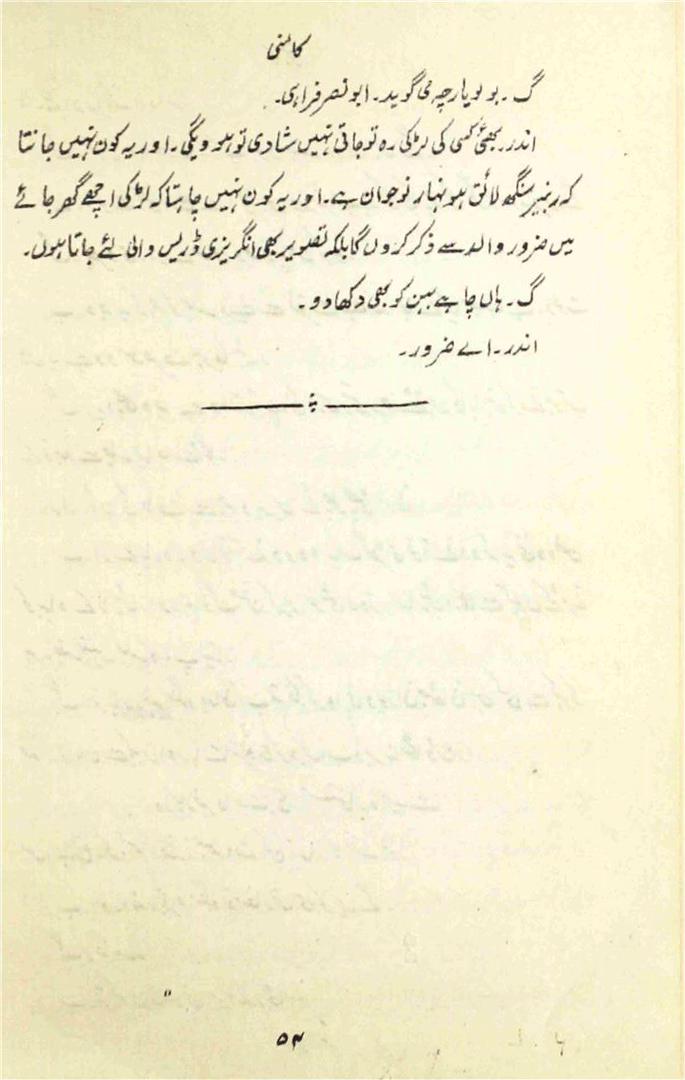 کامنی
گ۔ بو بو یارچہ می گوید۔ ابو نصر فراہی۔
اندر۔ بھئی کسی کی لڑکی رہ تو جاتی نہیں شادی تو ہو ویگی۔ اور یہ کون نہیں جانتا
کہ رنبیر سنگھ لائق ہونہار نوجوان ہے۔ اور یہ کون نہیں چاہتا کہ لڑکی اچھے گھر جائے
میں ضرور والد سے ذکر کروں گا بلکہ تصویر بھی انگریزی ڈریس والی لئے جاتا ہوں۔
گ۔ ہاں چاہے بہن کو بھی دکھا دو۔
اندر۔ اے ضرور۔
۵۴